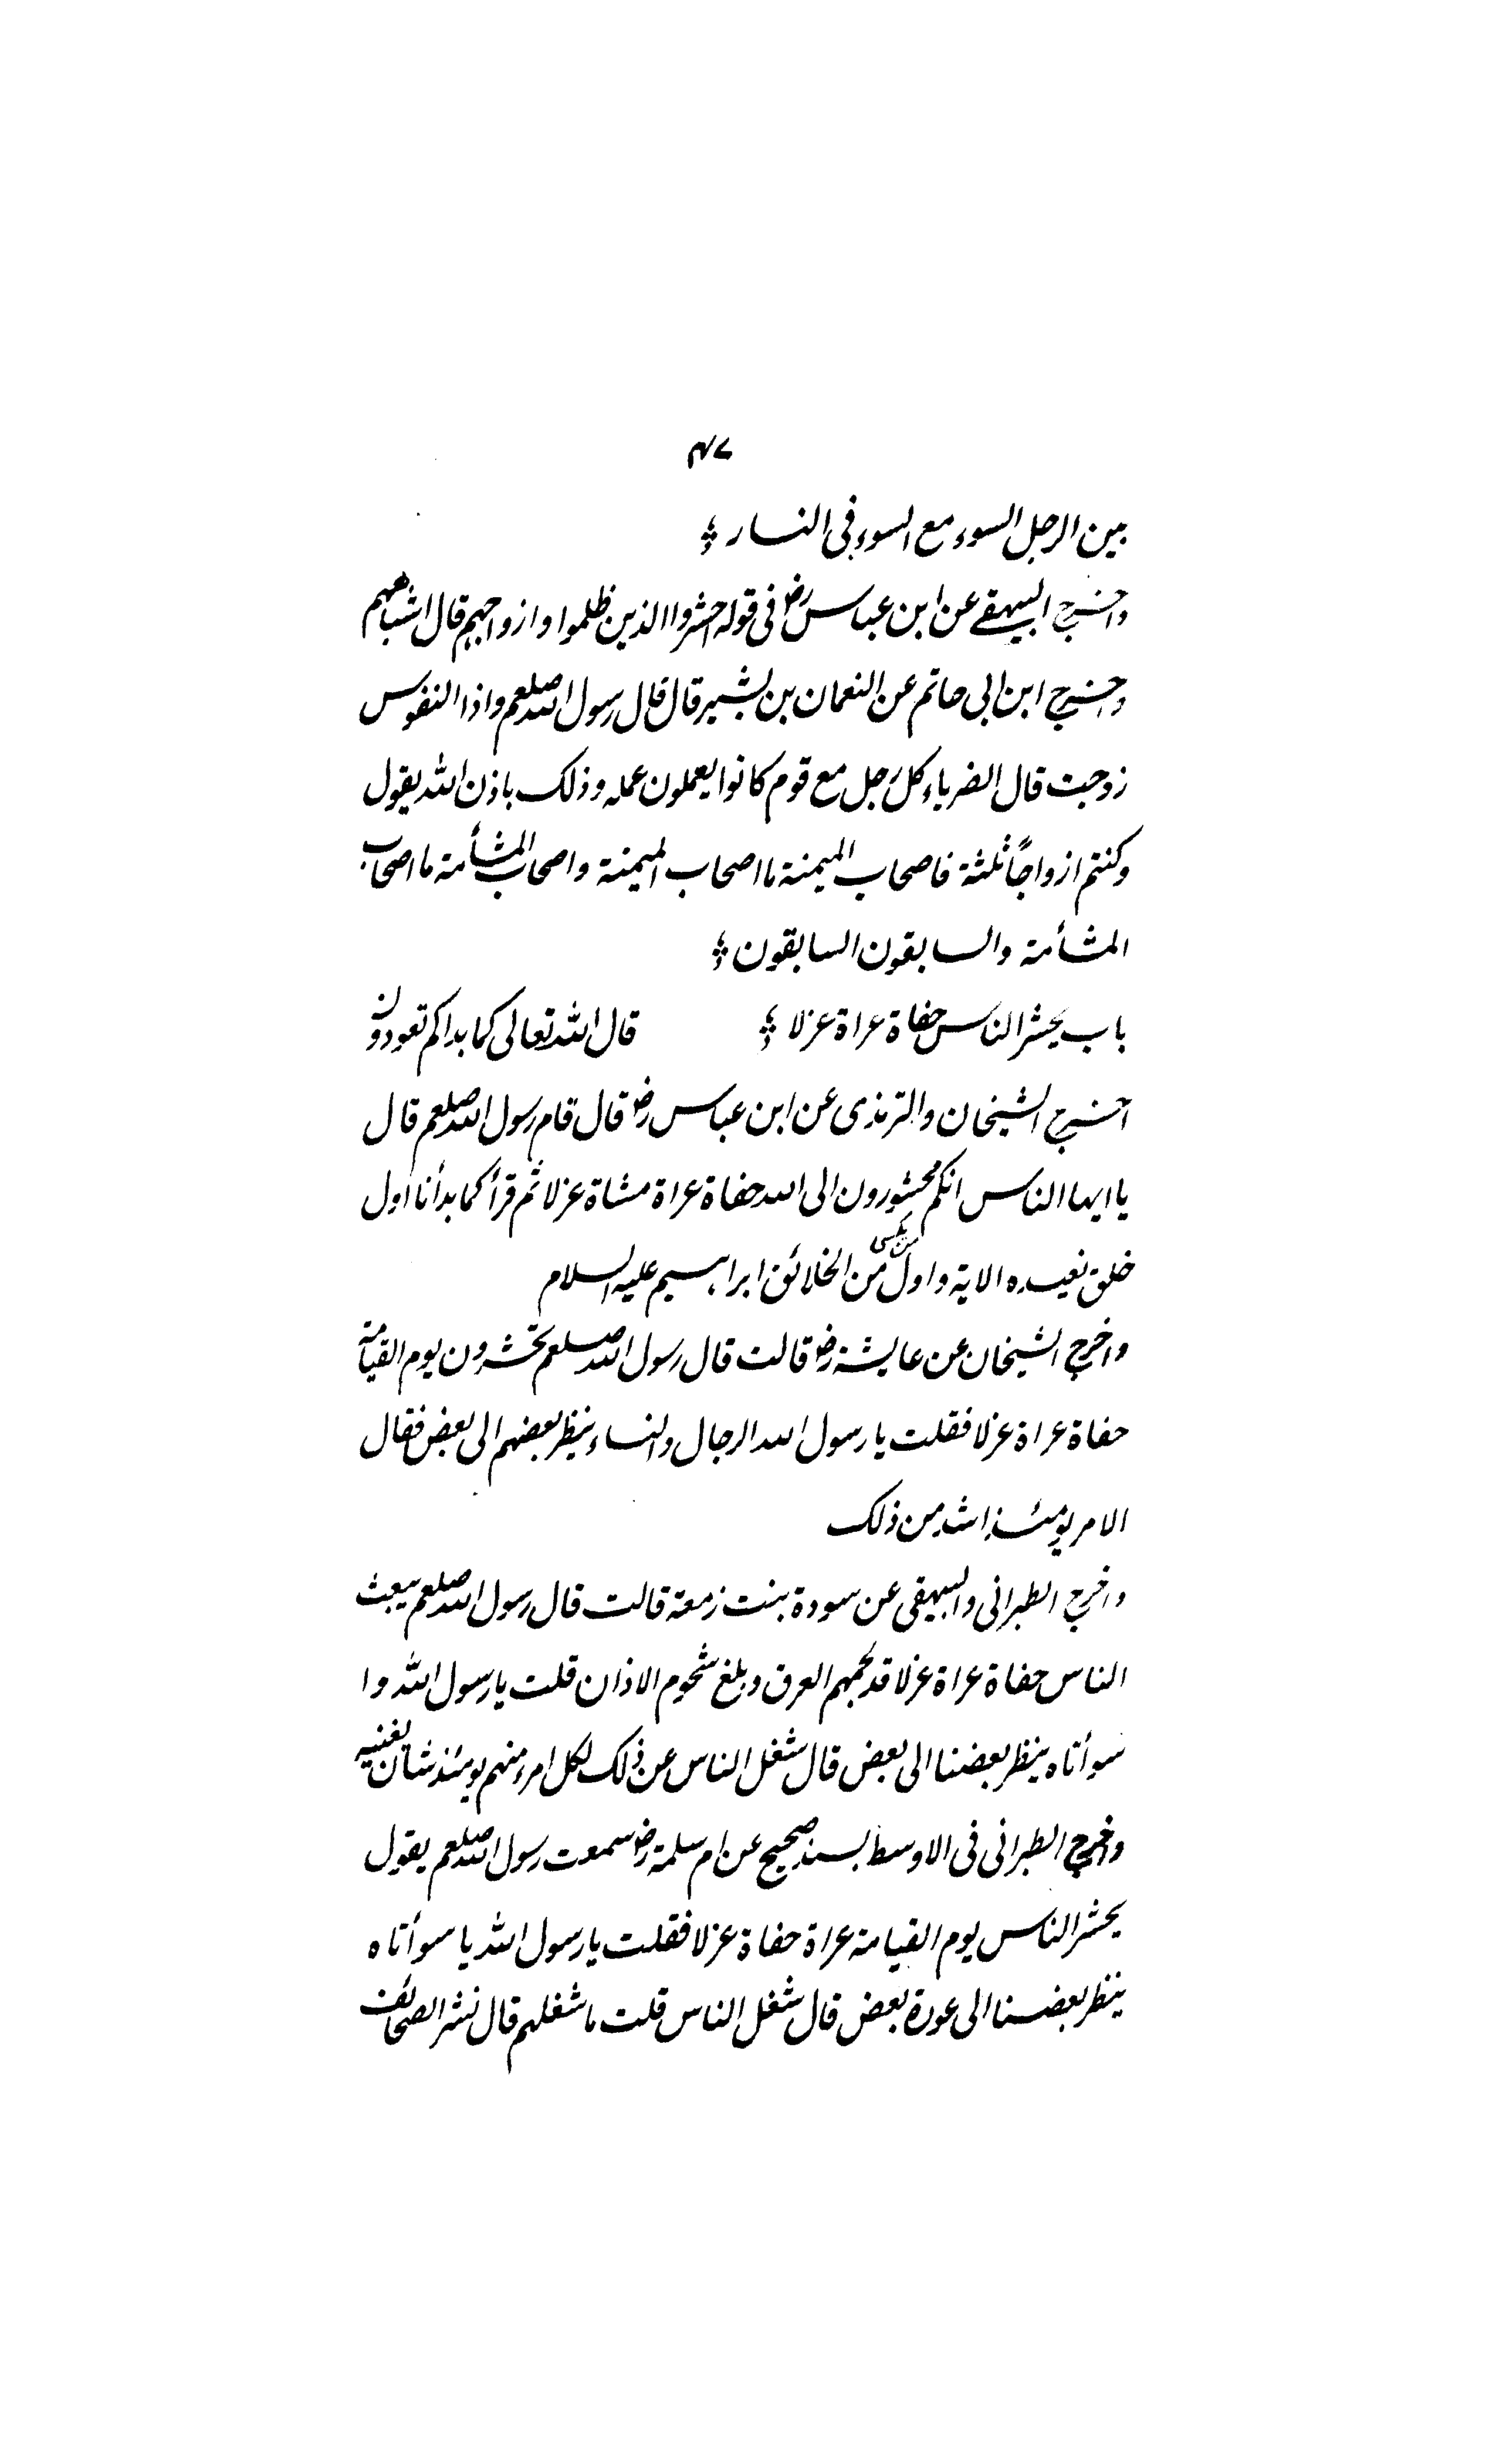 ۴۷
بين الرجل السوء مع السوء فى النار
واخرج البيهقے عن ابن عباس رض فى قوله احشروا الذين ظلموا وازواجهم قال اشباههم
واخرج ابن ابى حاتم عن النعمان بن بشير قال قال رسول الله صلعم واذا النفوس
زوجت قال الضرباء كل رجل مع قوم كانوا يعملون عمله وذلك باذن الله يقول
وكنتم ازواجًا ثلثة فاصحاب الميمنة ما اصحاب الميمنة واصحاب المشأمة ما اصحاب
المشأمة والسابقون السابقون
باب يحشر الناس حفاة عراة عزلا قال الله تعالى كما بداكم تعودون
اخرج الشيخان والترمذى عن ابن عباس رض قال قام رسول الله صلعم قال
يا ايها الناس انكم محشورون الى الله حفاة عراة مشاة عزلا ثم قرأ كما بدأنا اول
خلق نعيده الاية واول من يكسى من الخلائق ابراهيم عليه السلام
واخرج الشيخان عن عايشة رض قالت قال رسول الله صلعم تحشرون يوم القيامة
حفاة عراة عزلا فقلت يا رسول الله الرجال والنساء ينظر بعضهم الى بعض فقال
الامر يومئذ اشد من ذلك
واخرج الطبرانى والبيهقى عن سودة بنت زمعة قالت قال رسول الله صلعم يبعث
الناس حفاة عراة عزلا قد لجمهم العرق وبلغ شحوم الاذان قلت يا رسول الله وا
سوأتاه ينظر بعضنا الى بعض قال شغل الناس عن ذلك لكل امرء منهم يومئذ شان يغنيه
واخرج الطبرانى فى الاوسط بسند صحيح عن ام سلمة رض سمعت رسول الله صلعم يقول
يحشر الناس يوم القيامة عراة حفاة عزلا فقلت يا رسول الله يا سوأتاه
ينظر بعضنا الى عورة بعض قال شغل الناس قلت ما شغلهم قال نشر الصحائف